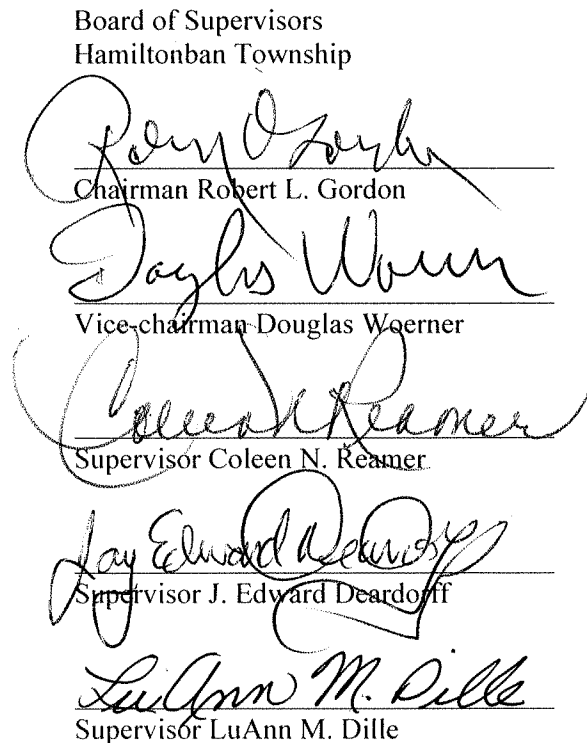 Board of Supervisors
Hamiltonban Township
Chairman Robert L. Gordon
Douglas Woerner
Vice-chairman Douglas Woerner
Coleen N Reamer
Supervisor Coleen N. Reamer
Jay Edward Deardorff
Supervisor J. Edward Deardorff
LuAnn M. Dille
Supervisor LuAnn M. Dille